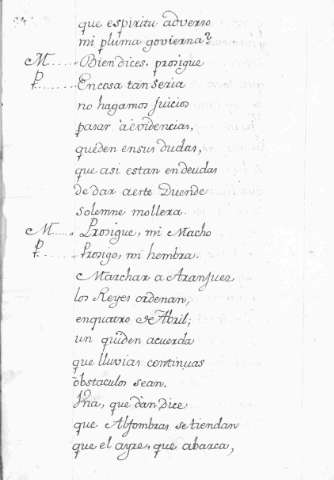 que espiritu adverso
mi pluma govierna?
M...... Bien dices. prosigue
P....... En cosa tan seria
no hagamos juicios
pasar à evidencias,
quéden en sus dudas,
que asi estan en deudas
de dar a este Duende
solemne mollera.
M..... Prosigue, mi Macho
P...... Prosigo, mi hembra.
Marchar a Aranjuez
los Reyes ordenan,
en quatro de Abril;
un quiden acuerda
que lluvias continuas
obstaculos sean.
que dan Dice
que Alfombras se tiendan
que el ayre, que abarca,